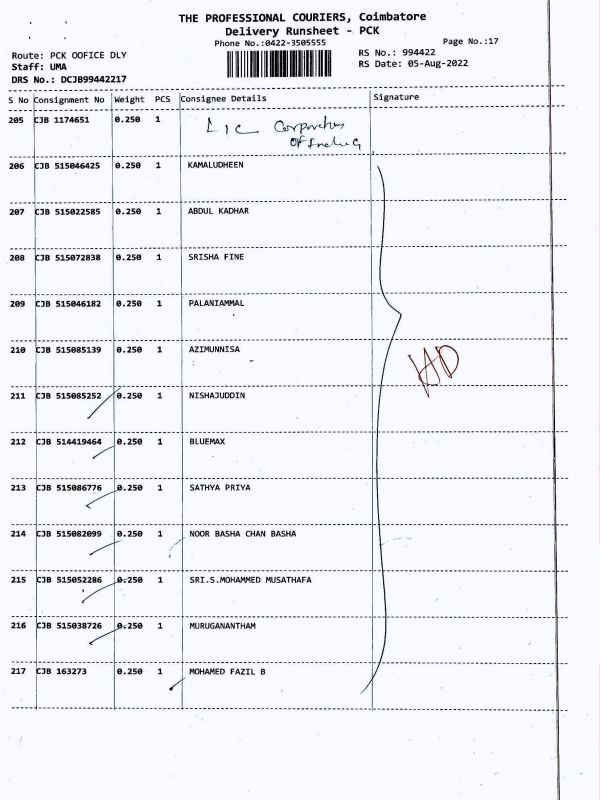 THE PROFESSIONAL COURIERS, Coimbatore
Delivery Runsheet - PCK
Phone No.:0422-3505555
Page No.:17
Route: PCK OOFICE DLY
RS No.: 994422
Staff: UMA
RS Date: 05-Aug-2022
DRS No.: DCJB99442217
S No Consignment No Weight PCS Consignee Details Signature
205 CJB 1174651 0.250 1 LIC Corporation
OF India
206 CJB 515046425 0.250 1 KAMALUDHEEN
207 CJB 515022585 0.250 1 ABDUL KADHAR
208 CJB 515072838 0.250 1 SRISHA FINE
209 CJB 515046182 0.250 1 PALANIAMMAL
210 CJB 515085139 0.250 1 AZIMUNNISA
211 CJB 515085252 0.250 1 NISHAJUDDIN
212 CJB 514419464 0.250 1 BLUEMAX
213 CJB 515086776 0.250 1 SATHYA PRIYA
214 CJB 515082099 0.250 1 NOOR BASHA CHAN BASHA
215 CJB 515052286 0.250 1 SRI.S.MOHAMMED MUSATHAFA
216 CJB 515038726 0.250 1 MURUGANANTHAM
217 CJB 163273 0.250 1 MOHAMED FAZIL B